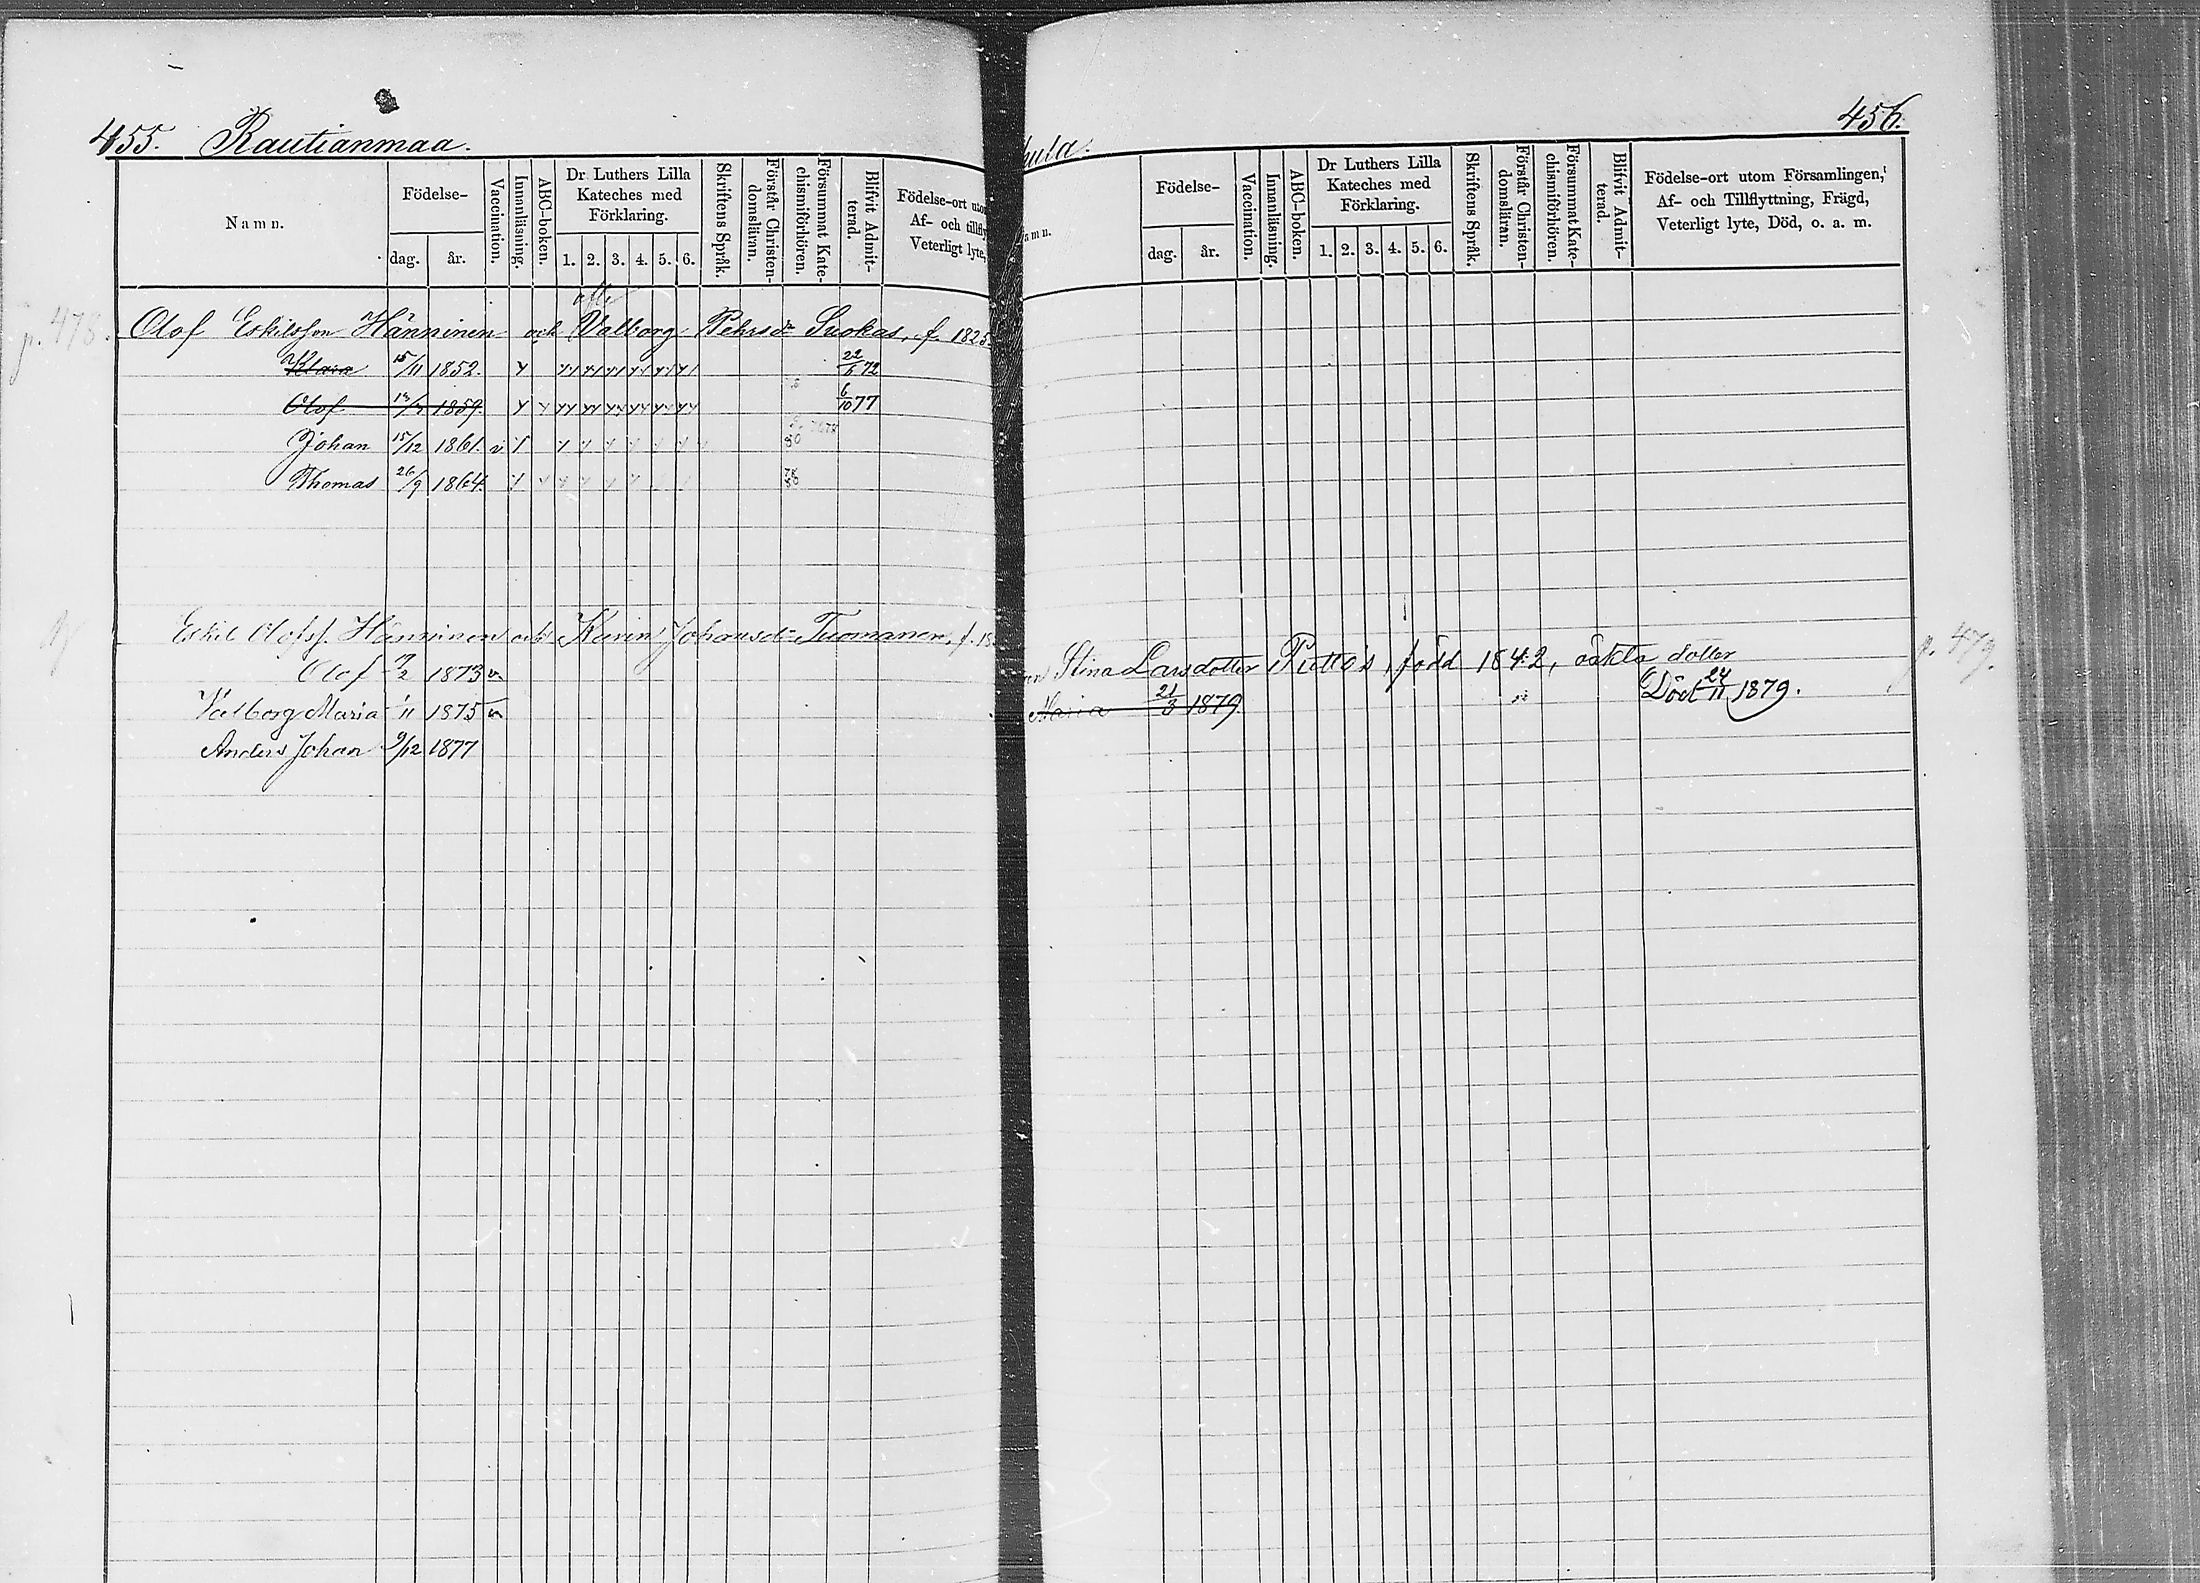 455. Rautianmaa.
Namn.
Födelse-
dag. år.
Vaccination.
Innanläsning.
ABC-boken.
Dr Luthers Lilla
Kateches med
Förklaring.
1. 2. 3. 4. 5. 6.
Skriftens Språk.
Förstår Christen-
domsläran.
Försummat Kate-
chismiförhören.
Blifvit Admit-
terad.
Födelse-ort uto
Af- och tillfly
Veterligt lyte,
p. 478.
Olof Eskilsson Hänninen och Valborg Pehrsdr Suokas, f. 1825.
Klara 15/11 1852. 22/6 72
Olof 1859. 6/10 77
Johan 15/12 1861. v 80
Thomas 26/9 1864. 78 80
Eskil Olofss. Hänninen och Karin Johansdr Tuomanen, f. 18
Olof 1873 v
Valborg Maria 1/11 1875 v
Anders Johan 9/12 1877
456.
hula.
amn.
Födelse-
dag. år.
Vaccination.
Innanläsning.
ABC-boken.
Dr Luthers Lilla
Kateches med
Förklaring.
1. 2. 3. 4. 5. 6.
Skriftens Språk.
Förstår Christen-
domsläran.
Försummat Kate-
chismiförhören.
Blifvit Admit-
terad.
Födelse-ort utom Församlingen,
Af- och Tillflyttning, Frägd,
Veterligt lyte, Död, o. a. m.
Stina Larsdotter född 1842, oäkta dotter
p. 479.
Maria 21/3 1879. Död 24/11 1879.